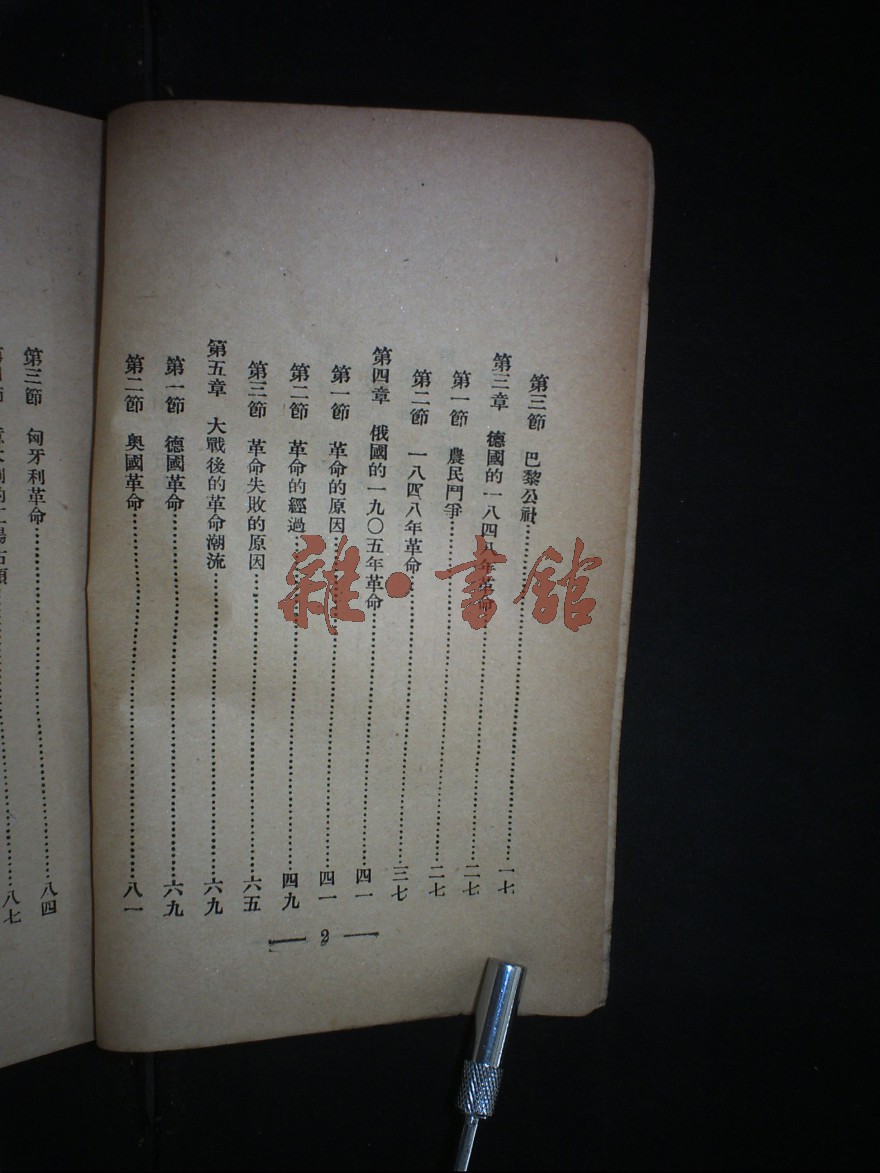 第三節　巴黎公社……一七
第三章　德國的一八四八年革命……二七
第一節　農民鬥爭……二七
第二節　一八四八年革命……三七
第四章　俄國的一九〇五年革命……四一
第一節　革命的原因……四一
第二節　革命的經過……四九
第三節　革命失敗的原因……六五
第五章　大戰後的革命潮流……六九
第一節　德國革命……六九
第二節　奧國革命……八一
— 2 —
第三節　匈牙利革命……八四
八七
雜·書館